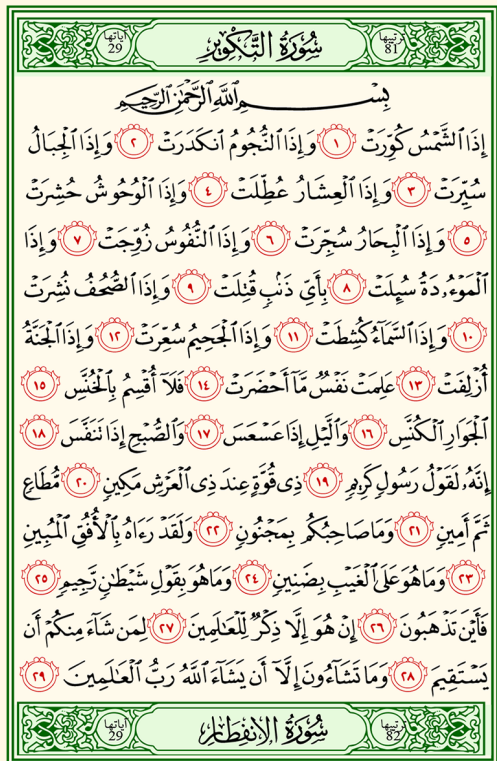 ترتيبها 81 سُورَةُ التَّكْوِيرِ آياتها 29
بِسْمِ ٱللَّهِ ٱلرَّحْمَٰنِ ٱلرَّحِيمِ
إِذَا ٱلشَّمْسُ كُوِّرَتْ ١ وَإِذَا ٱلنُّجُومُ ٱنكَدَرَتْ ٢ وَإِذَا ٱلْجِبَالُ
سُيِّرَتْ ٣ وَإِذَا ٱلْعِشَارُ عُطِّلَتْ ٤ وَإِذَا ٱلْوُحُوشُ حُشِرَتْ
٥ وَإِذَا ٱلْبِحَارُ سُجِّرَتْ ٦ وَإِذَا ٱلنُّفُوسُ زُوِّجَتْ ٧ وَإِذَا
ٱلْمَوْءُۥدَةُ سُئِلَتْ ٨ بِأَىِّ ذَنۢبٍ قُتِلَتْ ٩ وَإِذَا ٱلصُّحُفُ نُشِرَتْ
١٠ وَإِذَا ٱلسَّمَآءُ كُشِطَتْ ١١ وَإِذَا ٱلْجَحِيمُ سُعِّرَتْ ١٢ وَإِذَا ٱلْجَنَّةُ
أُزْلِفَتْ ١٣ عَلِمَتْ نَفْسٌ مَّآ أَحْضَرَتْ ١٤ فَلَآ أُقْسِمُ بِٱلْخُنَّسِ ١٥
ٱلْجَوَارِ ٱلْكُنَّسِ ١٦ وَٱلَّيْلِ إِذَا عَسْعَسَ ١٧ وَٱلصُّبْحِ إِذَا تَنَفَّسَ ١٨
إِنَّهُۥ لَقَوْلُ رَسُولٍ كَرِيمٍ ١٩ ذِى قُوَّةٍ عِندَ ذِى ٱلْعَرْشِ مَكِينٍ ٢٠ مُّطَاعٍ
ثَمَّ أَمِينٍ ٢١ وَمَا صَاحِبُكُم بِمَجْنُونٍ ٢٢ وَلَقَدْ رَءَاهُ بِٱلْأُفُقِ ٱلْمُبِينِ
٢٣ وَمَا هُوَ عَلَى ٱلْغَيْبِ بِضَنِينٍ ٢٤ وَمَا هُوَ بِقَوْلِ شَيْطَٰنٍ رَّجِيمٍ ٢٥
فَأَيْنَ تَذْهَبُونَ ٢٦ إِنْ هُوَ إِلَّا ذِكْرٌ لِّلْعَٰلَمِينَ ٢٧ لِمَن شَآءَ مِنكُمْ أَن
يَسْتَقِيمَ ٢٨ وَمَا تَشَآءُونَ إِلَّآ أَن يَشَآءَ ٱللَّهُ رَبُّ ٱلْعَٰلَمِينَ ٢٩
ترتيبها 82 سُورَةُ الِانفِطَارِ آياتها 29